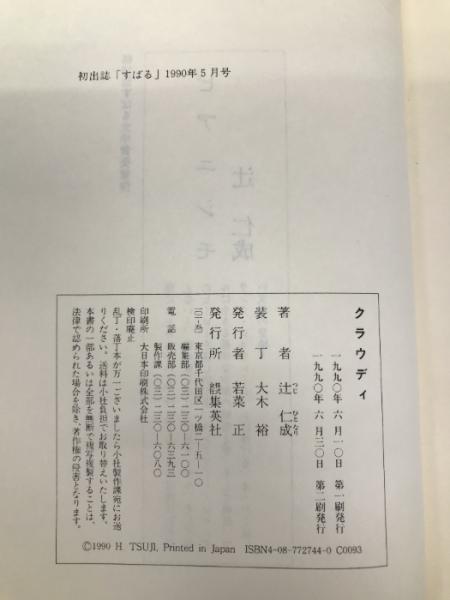 初出誌「すばる」1990年5月号
クラウディ
一九九〇年 六月一〇日 第一刷発行
一九九〇年 六月三〇日 第二刷発行
著者 辻 仁成
つじ ひとなり
装丁 大木 裕
発行者 若菜 正
発行所 ㈱集英社
東京都千代田区一ツ橋二―五―一〇
電話 編集部(〇三)二三〇―六一〇〇
販売部(〇三)二三〇―六三九三
製作課(〇三)二三〇―六〇八〇
印刷所 大日本印刷株式会社
検印廃止
乱丁・落丁本が万一ございましたら小社製作課宛にお送
りください。送料は小社負担でお取り替えいたします。
本書の一部あるいは全部を無断で複写複製することは、
法律で認められた場合を除き、著作権の侵害となります。
©1990 H. TSUJI, Printed in Japan ISBN4-08-772744-0 C0093